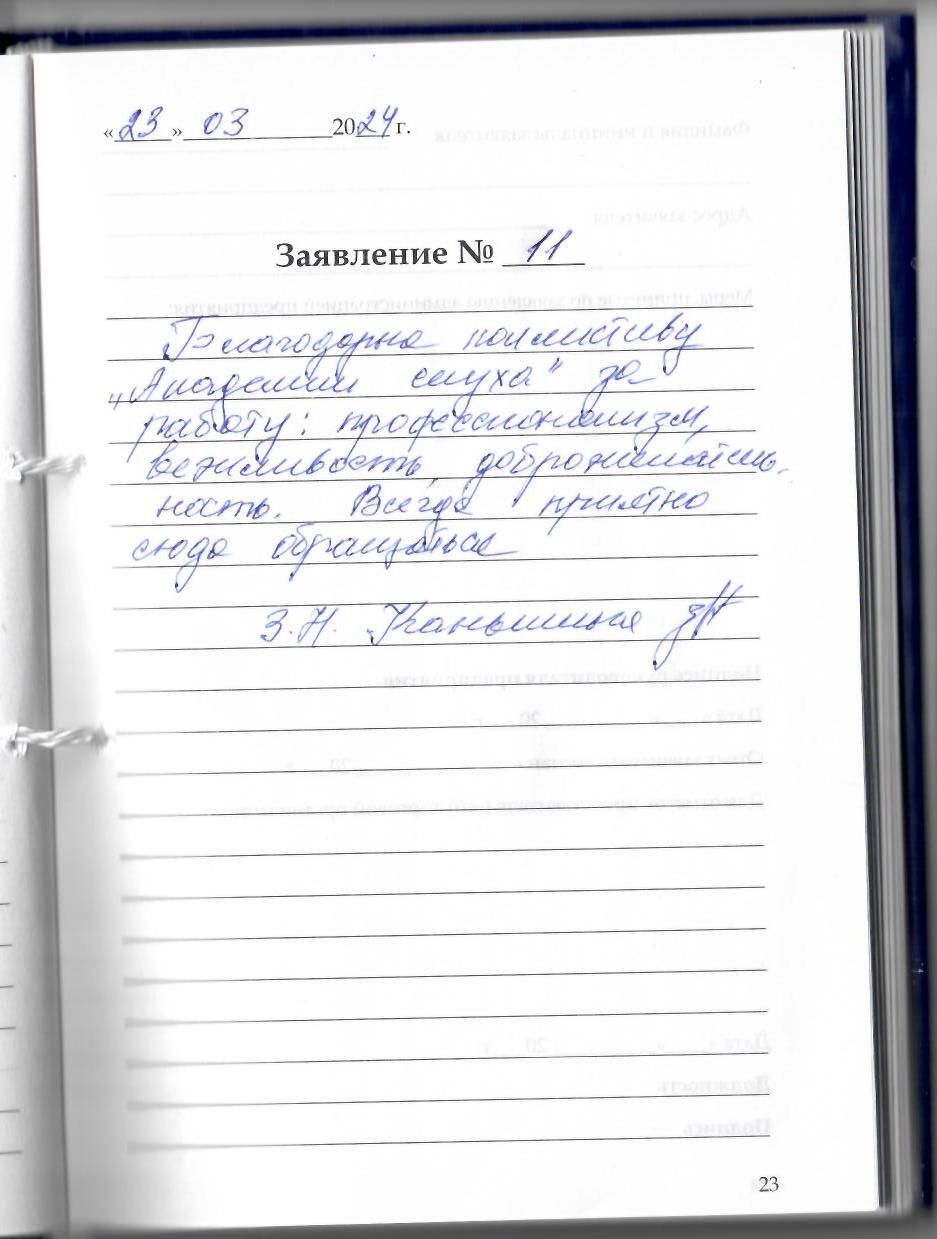 «23» 03 2024 г.
Заявление № 11
Благодарна коллективу
„Академии слуха" за
работу: профессионализм,
вежливость, доброжелатель-
ность. Всегда приятно
сюда обращаться
З.Н. Каньшина
23